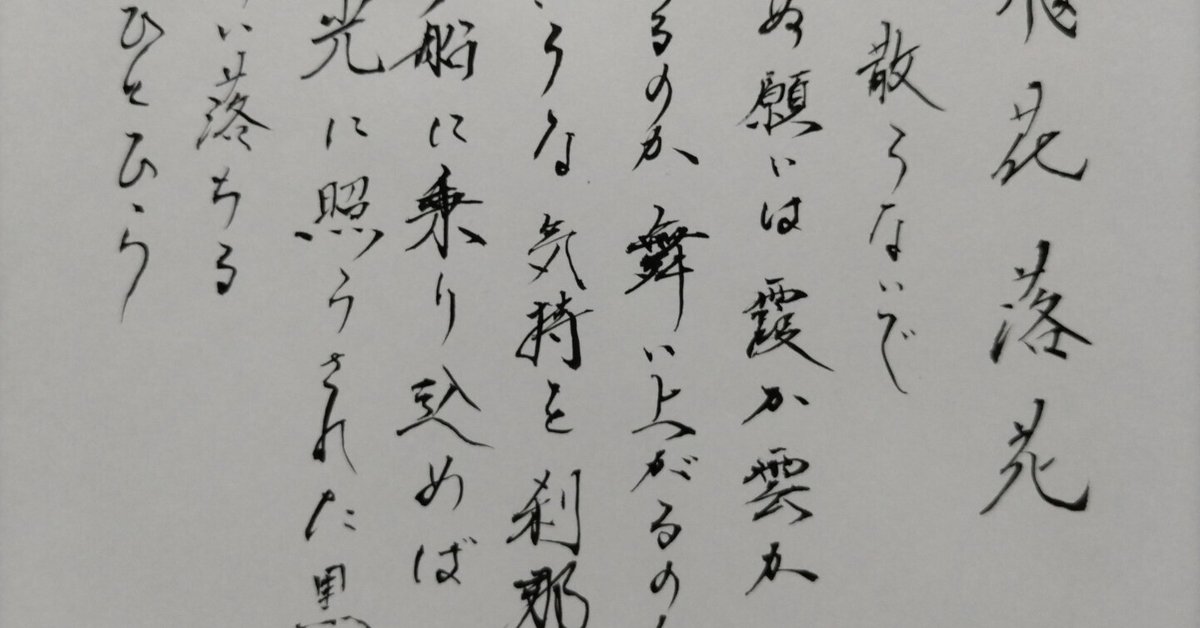 花落花
散らないで
ぬ願いは霞か雲か
るのか舞い上がるの
うな気持を刹那
船に乗り込めば
光に照らされた黒
い落ちる
ひとひら